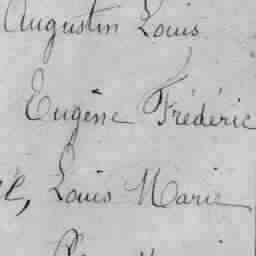 Augustin Louis
Eugène Frédéric
Louis Marie